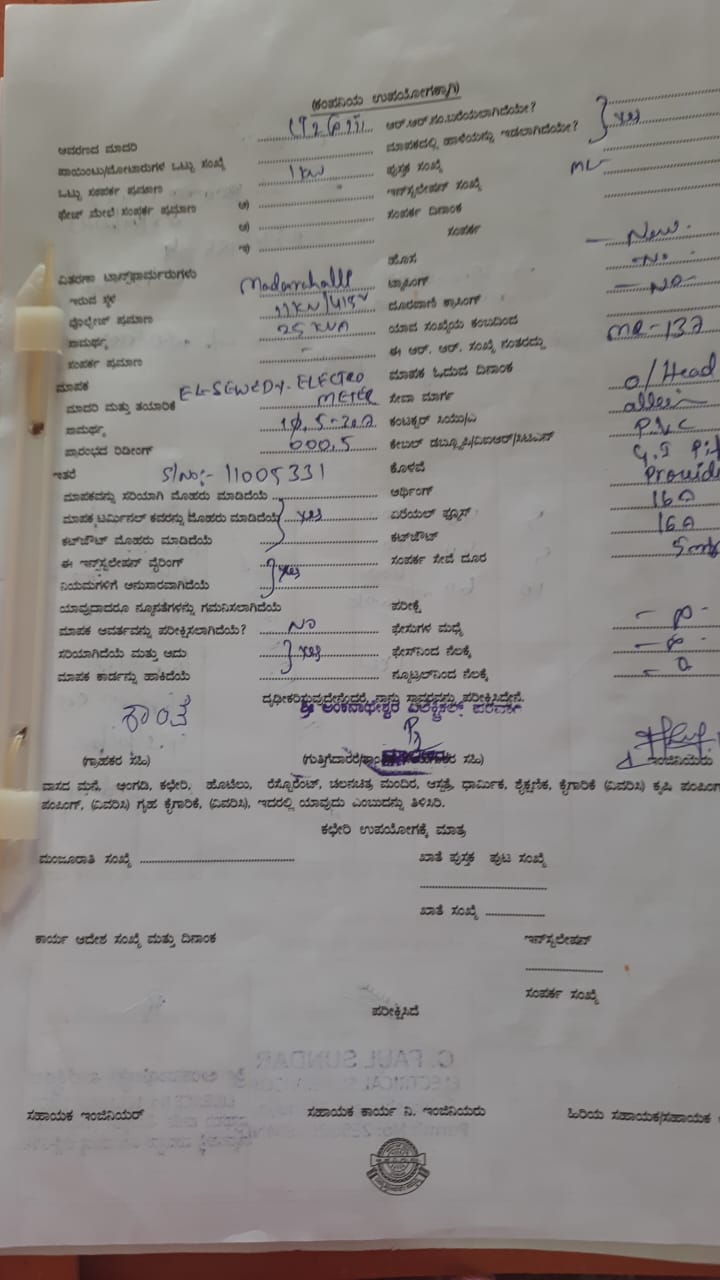 (ಕಂಪನಿಯ ಉಪಯೋಗಕ್ಕಾಗಿ)
ಆವರಣದ ಮಾದರಿ ಆರ್.ಆರ್.ಸಂ.ಬರೆಯಲಾಗಿದೆಯೇ?
ಪಾಯಿಂಟು/ಮೋಟಾರುಗಳ ಒಟ್ಟು ಸಂಖ್ಯೆ ಮಾಪಕದಲ್ಲಿ ಹಾಳೆಯನ್ನು ಇಡಲಾಗಿದೆಯೇ? yes
ಒಟ್ಟು ಸಂಪರ್ಕ ಪ್ರಮಾಣ 1 kw ಪುಸ್ತಕ ಸಂಖ್ಯೆ
ಫೇಜ್ ಮೇಲೆ ಸಂಪರ್ಕ ಪ್ರಮಾಣ ಅ) ಇನ್‌ಸ್ಟಲೇಷನ್ ಸಂಖ್ಯೆ
ಆ) ಸಂಪರ್ಕ ದಿನಾಂಕ
ಇ) ಸಂಪರ್ಕ
ವಿತರಣಾ ಟ್ರಾನ್ಸ್‌ಫಾರ್ಮರುಗಳು ಹೊಸ - New.
ಇರುವ ಸ್ಥಳ Madarahalli ಟ್ಯಾಪಿಂಗ್ - No.
ವೋಲ್ಟೇಜ್ ಪ್ರಮಾಣ 11KV/415V ದೂರವಾಣಿ ಕ್ರಾಸಿಂಗ್ - No -
ಸಾಮರ್ಥ್ಯ 25 KVA ಯಾವ ಸಂಖ್ಯೆಯ ಕಂಬದಿಂದ
ಸಂಪರ್ಕ ಪ್ರಮಾಣ - ಈ ಆರ್. ಆರ್. ಸಂಖ್ಯೆ ನಂತರದ್ದು MR-137
ಮಾಪಕ EL-SEWEDY-ELECTRO ಮಾಪಕ ಓದುವ ದಿನಾಂಕ
ಮಾದರಿ ಮತ್ತು ತಯಾರಿಕೆ METER ಸೇವಾ ಮಾರ್ಗ o/Head
ಸಾಮರ್ಥ್ಯ ಕಂಟಕ್ಟರ್ ಸಿಯು/ಎ
ಪ್ರಾರಂಭದ ರಿಡೀಂಗ್ 000.5 ಕೇಬಲ್ P.V.C
ಇತರೆ S/No:- 11005331 ಕೊಳವೆ G.I
ಮಾಪಕವನ್ನು ಸರಿಯಾಗಿ ಮೊಹರು ಮಾಡಿದೆಯೆ ಅರ್ಥಿಂಗ್
ಮಾಪಕ ಟರ್ಮಿನಲ್ ಕವರನ್ನು ಮೊಹರು ಮಾಡಿದೆಯೆ yes ಏರಿಯಲ್ ಫ್ಯೂಸ್ 16 A
ಕಟ್‌ಔಟ್ ಮೊಹರು ಮಾಡಿದೆಯೆ ಕಟ್‌ಔಟ್ 16 A
ಈ ಇನ್‌ಸ್ಟಲೇಷನ್ ವೈರಿಂಗ್ yes ಸಂಪರ್ಕ ಸೇವೆ ದೂರ
ನಿಯಮಗಳಿಗೆ ಅನುಸಾರವಾಗಿದೆಯೆ
ಯಾವುದಾದರೂ ನ್ಯೂನತೆಗಳನ್ನು ಗಮನಿಸಲಾಗಿದೆಯೆ ಪರೀಕ್ಷೆ
ಮಾಪಕ ಆವರ್ತವನ್ನು ಪರೀಕ್ಷಿಸಲಾಗಿದೆಯೆ? No ಫೇಸುಗಳ ಮಧ್ಯೆ
ಸರಿಯಾಗಿದೆಯೆ ಮತ್ತು ಅದು yes ಫೇಸ್‌ನಿಂದ ನೆಲಕ್ಕೆ
ಮಾಪಕ ಕಾರ್ಡನ್ನು ಹಾಕಿದೆಯೆ ನ್ಯೂಟ್ರಲ್‌ನಿಂದ ನೆಲಕ್ಕೆ
ದೃಢೀಕರಿಸುವುದೇನೆಂದರೆ, ನಾನು ಸ್ಥಾವರವನ್ನು ಪರೀಕ್ಷಿಸಿದ್ದೇನೆ.
ಶ್ರೀ ಅಂಕನಾಥೇಶ್ವರ ಎಲೆಕ್ಟ್ರಿಕಲ್ಸ್
(ಗ್ರಾಹಕರ ಸಹಿ) ಸಹಿ) ಇಂಜಿನಿಯರು
ವಾಸದ ಮನೆ, ಅಂಗಡಿ, ಕಛೇರಿ, ಹೊಟೆಲು, ರೆಸ್ಟೊರೆಂಟ್, ಚಲನಚಿತ್ರ ಮಂದಿರ, ಆಸ್ಪತ್ರೆ, ಧಾರ್ಮಿಕ, ಶೈಕ್ಷಣಿಕ, ಕೈಗಾರಿಕೆ (ವಿವರಿಸಿ) ಕೃಷಿ ಪಂಪಿಂಗ್
ಪಂಪಿಂಗ್, (ವಿವರಿಸಿ) ಗೃಹ ಕೈಗಾರಿಕೆ, (ವಿವರಿಸಿ), ಇದರಲ್ಲಿ ಯಾವುದು ಎಂಬುದನ್ನು ತಿಳಿಸಿರಿ.
ಕಛೇರಿ ಉಪಯೋಗಕ್ಕೆ ಮಾತ್ರ
ಮಂಜೂರಾತಿ ಸಂಖ್ಯೆ ಖಾತೆ ಪುಸ್ತಕ ಪುಟ ಸಂಖ್ಯೆ
ಖಾತೆ ಸಂಖ್ಯೆ
ಕಾರ್ಯ ಆದೇಶ ಸಂಖ್ಯೆ ಮತ್ತು ದಿನಾಂಕ ಇನ್‌ಸ್ಟಲೇಷನ್
ಸಂಪರ್ಕ ಸಂಖ್ಯೆ
ಪರೀಕ್ಷಿಸಿದೆ
ಸಹಾಯಕ ಇಂಜಿನಿಯರ್ ಸಹಾಯಕ ಕಾರ್ಯ ನಿ. ಇಂಜಿನಿಯರು ಹಿರಿಯ ಸಹಾಯಕ/ಸಹಾಯಕ